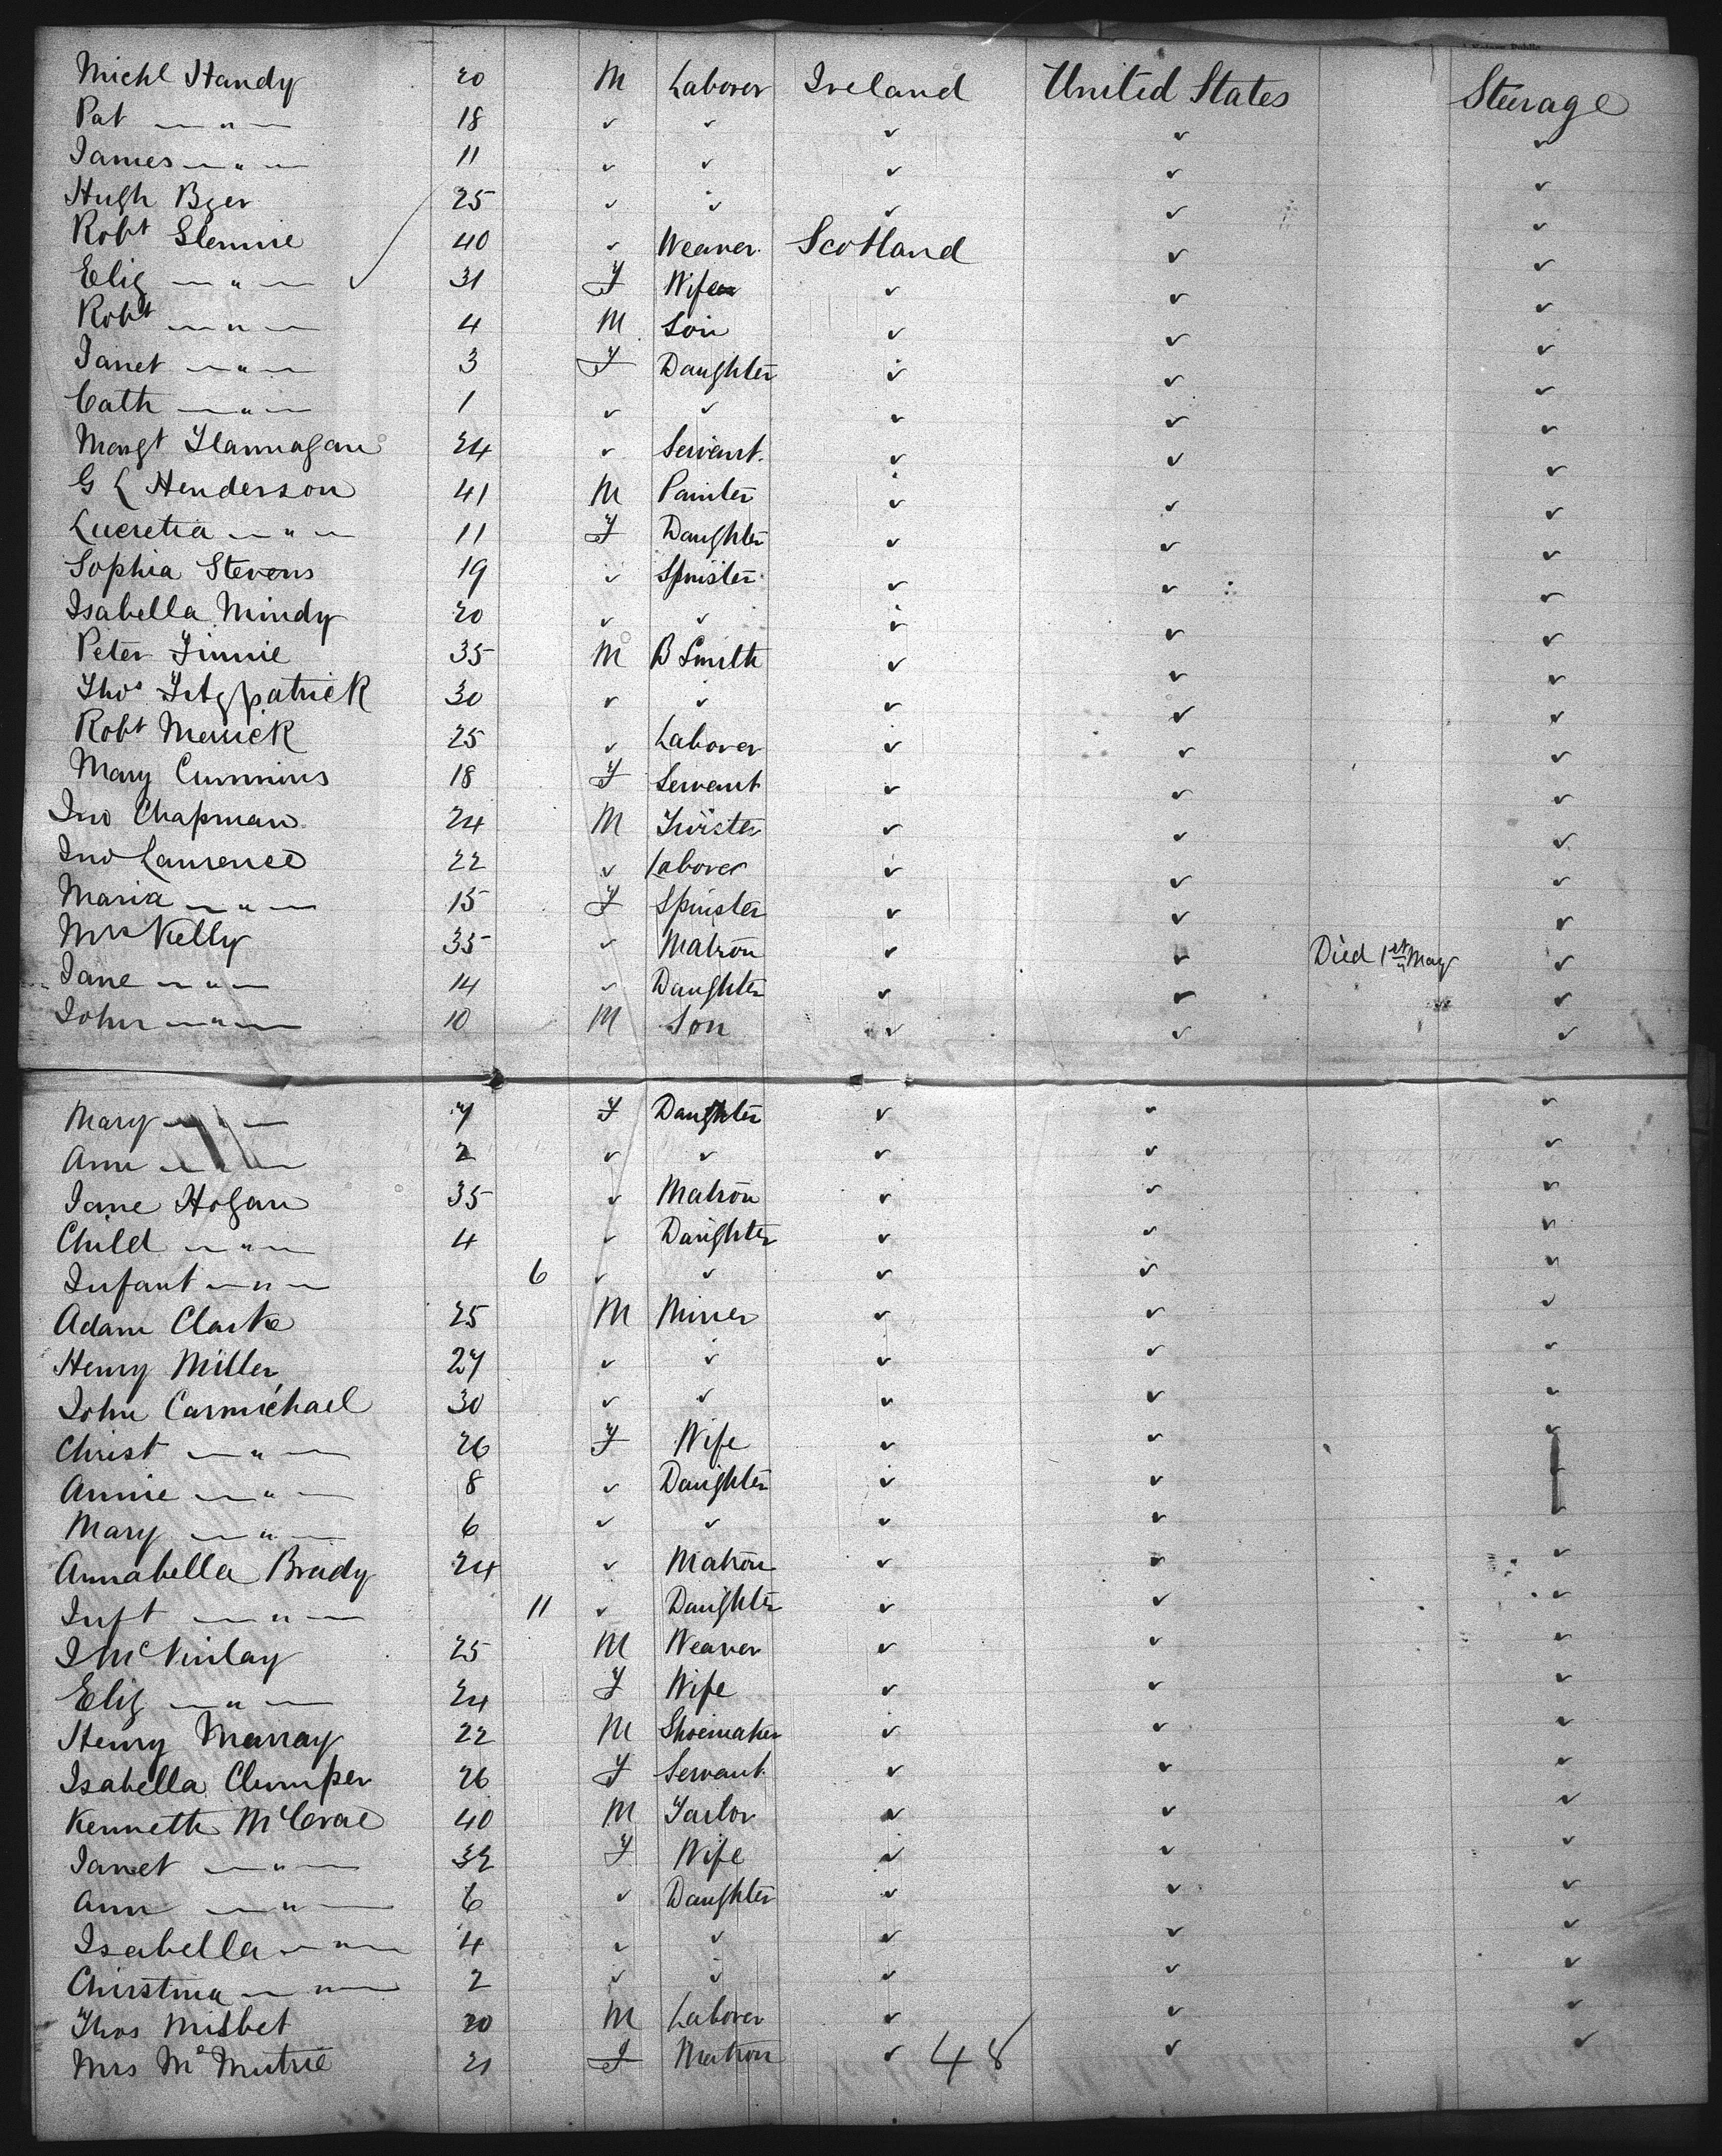 Michl Handy 20 M Laborer Ireland United States Steerage
Pat — " — 18 ✓ ✓ ✓ ✓ ✓
James — " — 11 ✓ ✓ ✓ ✓ ✓
Hugh 25 ✓ ✓ ✓ ✓ ✓
Robt 40 ✓ Weaver Scotland ✓ ✓
Eliz — " — 31 F Wife ✓ ✓ ✓
Robt — " — 4 M Son ✓ ✓ ✓
Janet — " — 3 F Daughter ✓ ✓ ✓
Cath — " — 1 ✓ ✓ ✓ ✓ ✓
Margt Flannagan 24 ✓ Servant. ✓ ✓ ✓
G L Henderson 41 M Painter ✓ ✓ ✓
Lucretia — " — 11 F Daughter ✓ ✓ ✓
Sophia Stevens 19 ✓ Spinster ✓ ✓ ✓
Isabella Mindy 20 ✓ ✓ ✓ ✓ ✓
Peter Finnie 35 M B Smith ✓ ✓ ✓
Thos Fitzpatrick 30 ✓ ✓ ✓ ✓ ✓
Robt Merrick 25 ✓ Laborer ✓ ✓ ✓
Mary Cummins 18 F Servant ✓ ✓ ✓
Jno Chapman 24 M Twister ✓ ✓ ✓
Jno Laurence 22 ✓ Laborer ✓ ✓ ✓
Maria — " — 15 F Spinster ✓ ✓ ✓
Mrs Kelly 35 ✓ Matron ✓ ✓ Died 1st May ✓
Jane — " — 14 ✓ Daughter ✓ ✓ ✓
John — " — 10 M Son ✓ ✓ ✓
Mary — " — 7 F Daughter ✓ ✓ ✓
Ann — " — 2 ✓ ✓ ✓ ✓ ✓
Jane Hogan 35 ✓ Matron ✓ ✓ ✓
Child — " — 4 ✓ Daughter ✓ ✓ ✓
Infant — " — 6 ✓ ✓ ✓ ✓ ✓
Adam Clarke 25 M Miner ✓ ✓ ✓
Henry Miller 27 ✓ ✓ ✓ ✓ ✓
John Carmichael 30 ✓ ✓ ✓ ✓ ✓
Christ — " — 26 F Wife ✓ ✓ ✓
Annie — " — 8 ✓ Daughter ✓ ✓ ✓
Mary — " — 6 ✓ ✓ ✓ ✓ ✓
Annabella Brady 24 ✓ Matron ✓ ✓ ✓
Inft — " — 11 ✓ Daughter ✓ ✓ ✓
J McKinlay 25 M Weaver ✓ ✓ ✓
Eliz — " — 24 F Wife ✓ ✓ ✓
Henry Murray 22 M Shoemaker ✓ ✓ ✓
Isabella Clumper 26 F Servant. ✓ ✓ ✓
Kenneth McCrae 40 M Tailor ✓ ✓ ✓
Janet — " — 32 F Wife ✓ ✓ ✓
Ann — " — 6 ✓ Daughter ✓ ✓ ✓
Isabella — " — 4 ✓ ✓ ✓ ✓ ✓
Christina — " — 2 ✓ ✓ ✓ ✓ ✓
Thos Misbet 20 M Laborer ✓ ✓ ✓
Mrs McMutrie 21 F Matron ✓ 48 ✓ ✓